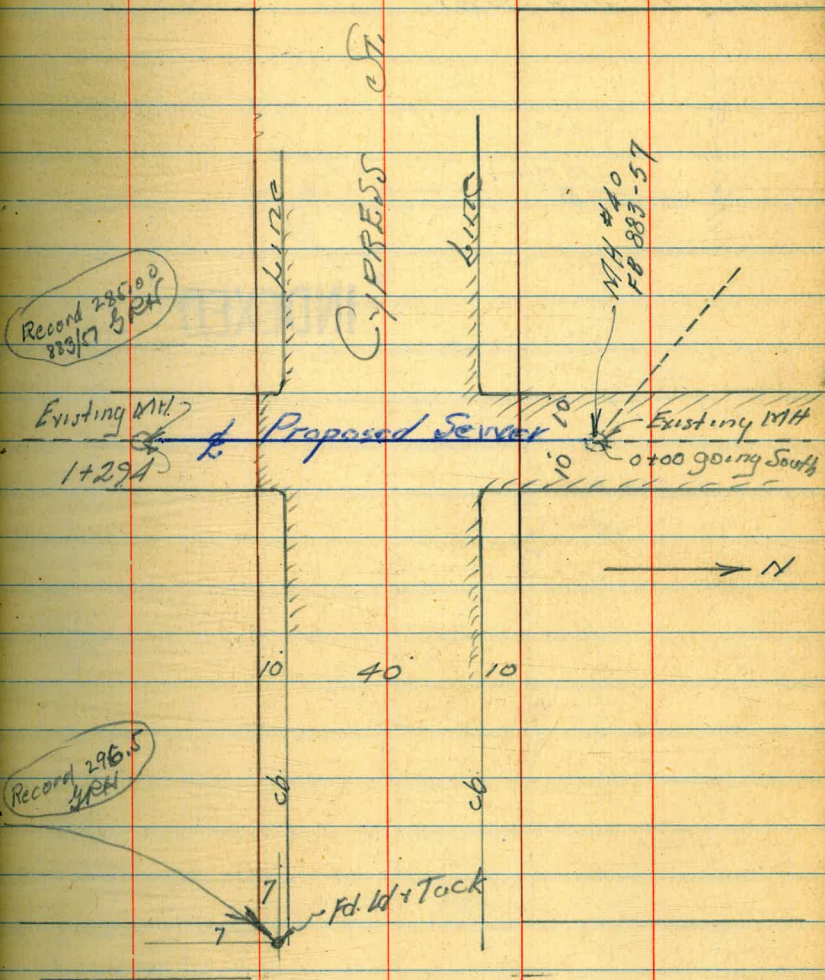 CYPRESS St.
Line
Line
MH #40
FB 883-57
Record 285.00
883/57 GRH
Existing MH.
1+294
℄ Proposed Sewer
10
10
Existing MH
0+00 going South
N
10
40
10
Record 296.5
GRH
cb
cb
7
7
Fd. Ld & Tack
INDEXED